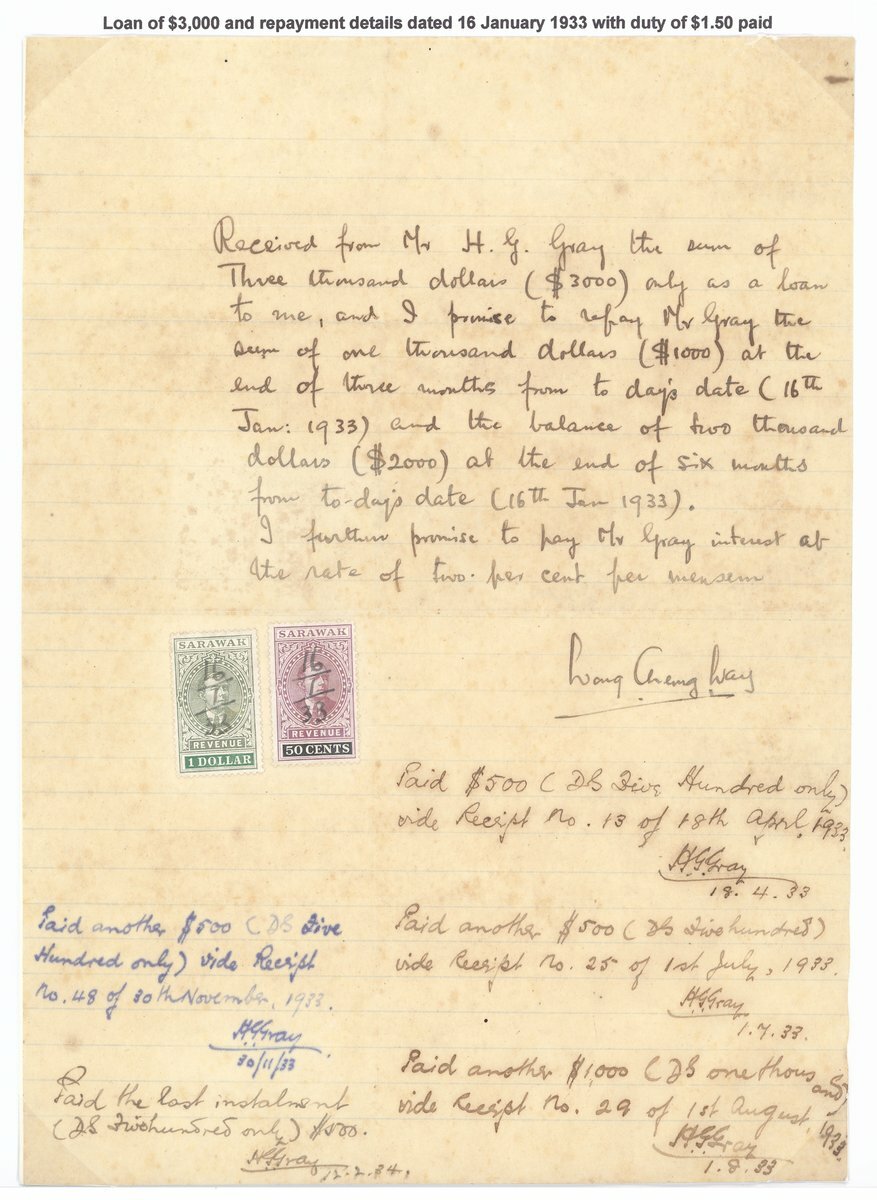 Loan of $3,000 and repayment details dated 16 January 1933 with duty of $1.50 paid
Received from Mr H. G. Gray the sum of
Three thousand dollars ($3000) only as a loan
to me, and I promise to repay Mr Gray the
sum of one thousand dollars ($1000) at the
end of three months from to day's date (16th
Jan: 1933) and the balance of two thousand
dollars ($2000) at the end of six months
from to-day's date (16th Jan 1933).
I further promise to pay Mr Gray interest at
the rate of two per cent per mensem
SARAWAK
16/1/33
REVENUE
1 DOLLAR
SARAWAK
16/1/33
REVENUE
50 CENTS
Paid $500 (D$ Five Hundred only)
vide Receipt No. 13 of 18th April, 1933.
H.G.Gray
18.4.33
Paid another $500 (D$ Five hundred)
vide Receipt No. 25 of 1st July, 1933.
H.G.Gray
1.7.33.
Paid another $1000 (D$ one thousand)
vide Receipt No. 29 of 1st August, 1933.
H.G.Gray
1.8.33
Paid another $500 (D$ Five
Hundred only) vide Receipt
No. 48 of 30th November, 1933.
H.G.Gray
30/11/33
Paid the last instalment
(D$ Five hundred only) $500.
H.G.Gray
12.2.34.